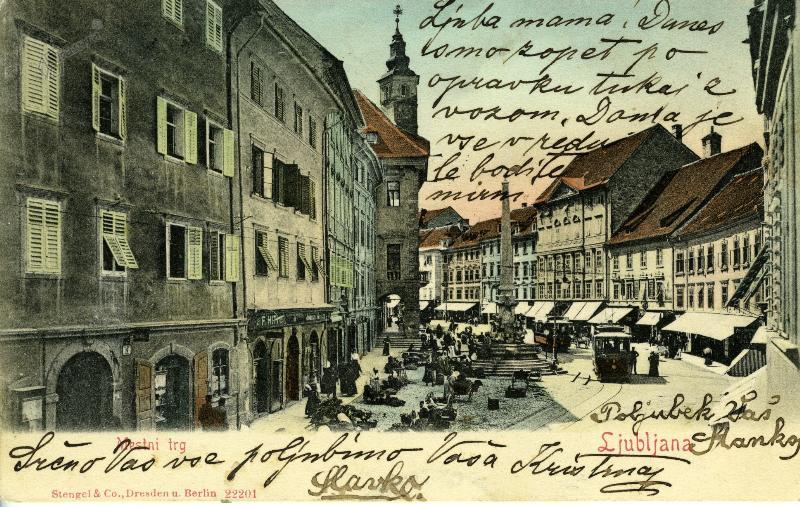 Ljuba mama! Danes
smo zopet po
opravku tukaj z
vozom. Doma je
vse v redu
le bodite
mirni
Poljubek Vaš
Stanko
Mestni trg
Ljubljana
Srčno Vas vse poljubimo Vaša
Slavko.
Stengel & Co., Dresden u. Berlin 22201